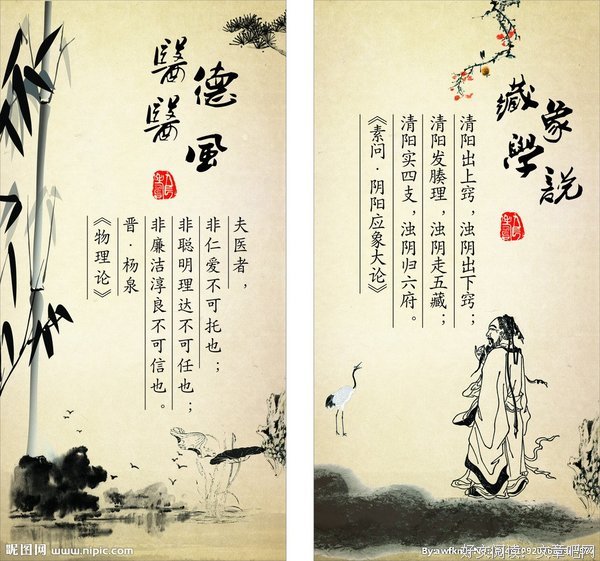 醫德
醫風
夫医者，
非仁爱不可托也；
非聪明理达不可任也；
非廉洁淳良不可信也。
晋·杨泉
《物理论》
昵图网 www.nipic.com
藏象學説
清阳出上窍，浊阴出下窍；
清阳发腠理，浊阴走五藏；
清阳实四支，浊阴归六府。
《素问·阴阳应象大论》